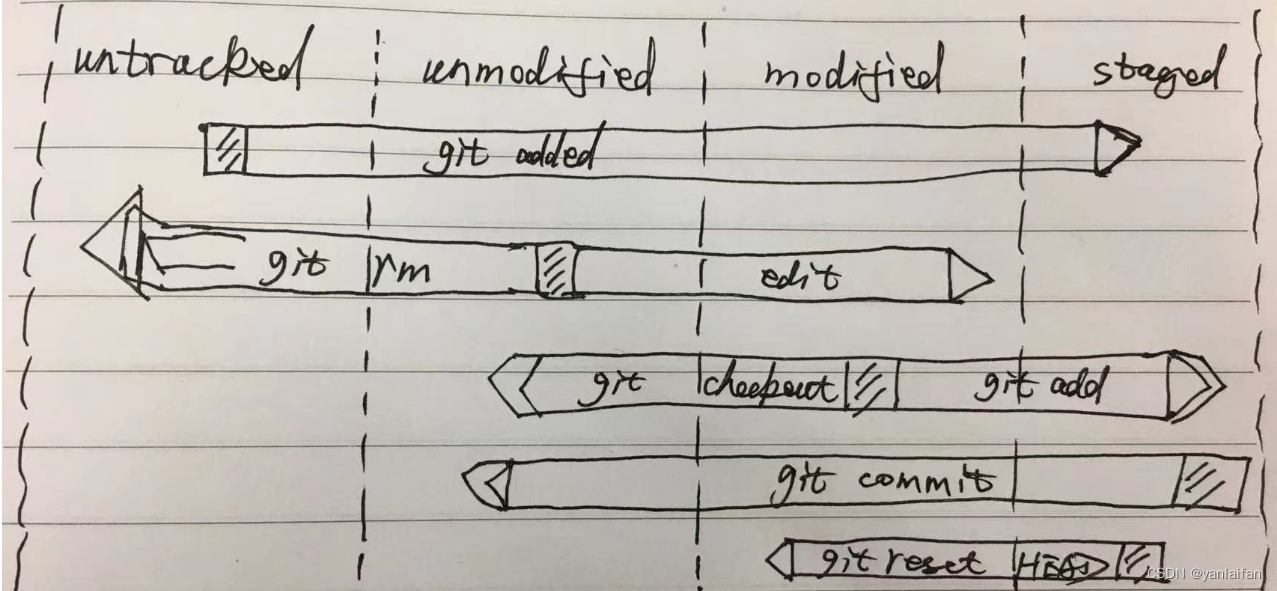 untracked unmodified modified staged
git added
git rm edit
git checkout git add
git commit
git reset HEAD
CSDN @yanlaifan